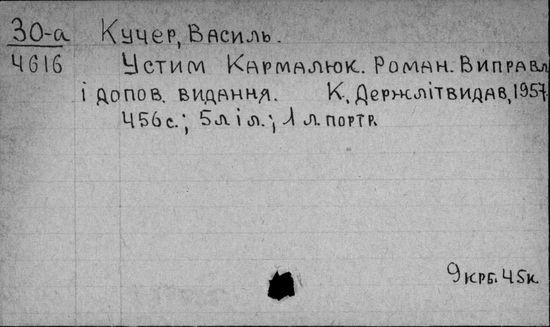 30-а Кучер, Василь.
4616 Устим Кармалюк. Роман. Виправл
і допов. видання. К, Держлітвидав, 1957
456с.; 5л іл.; 1 л. портр.
9 крб. 45к.